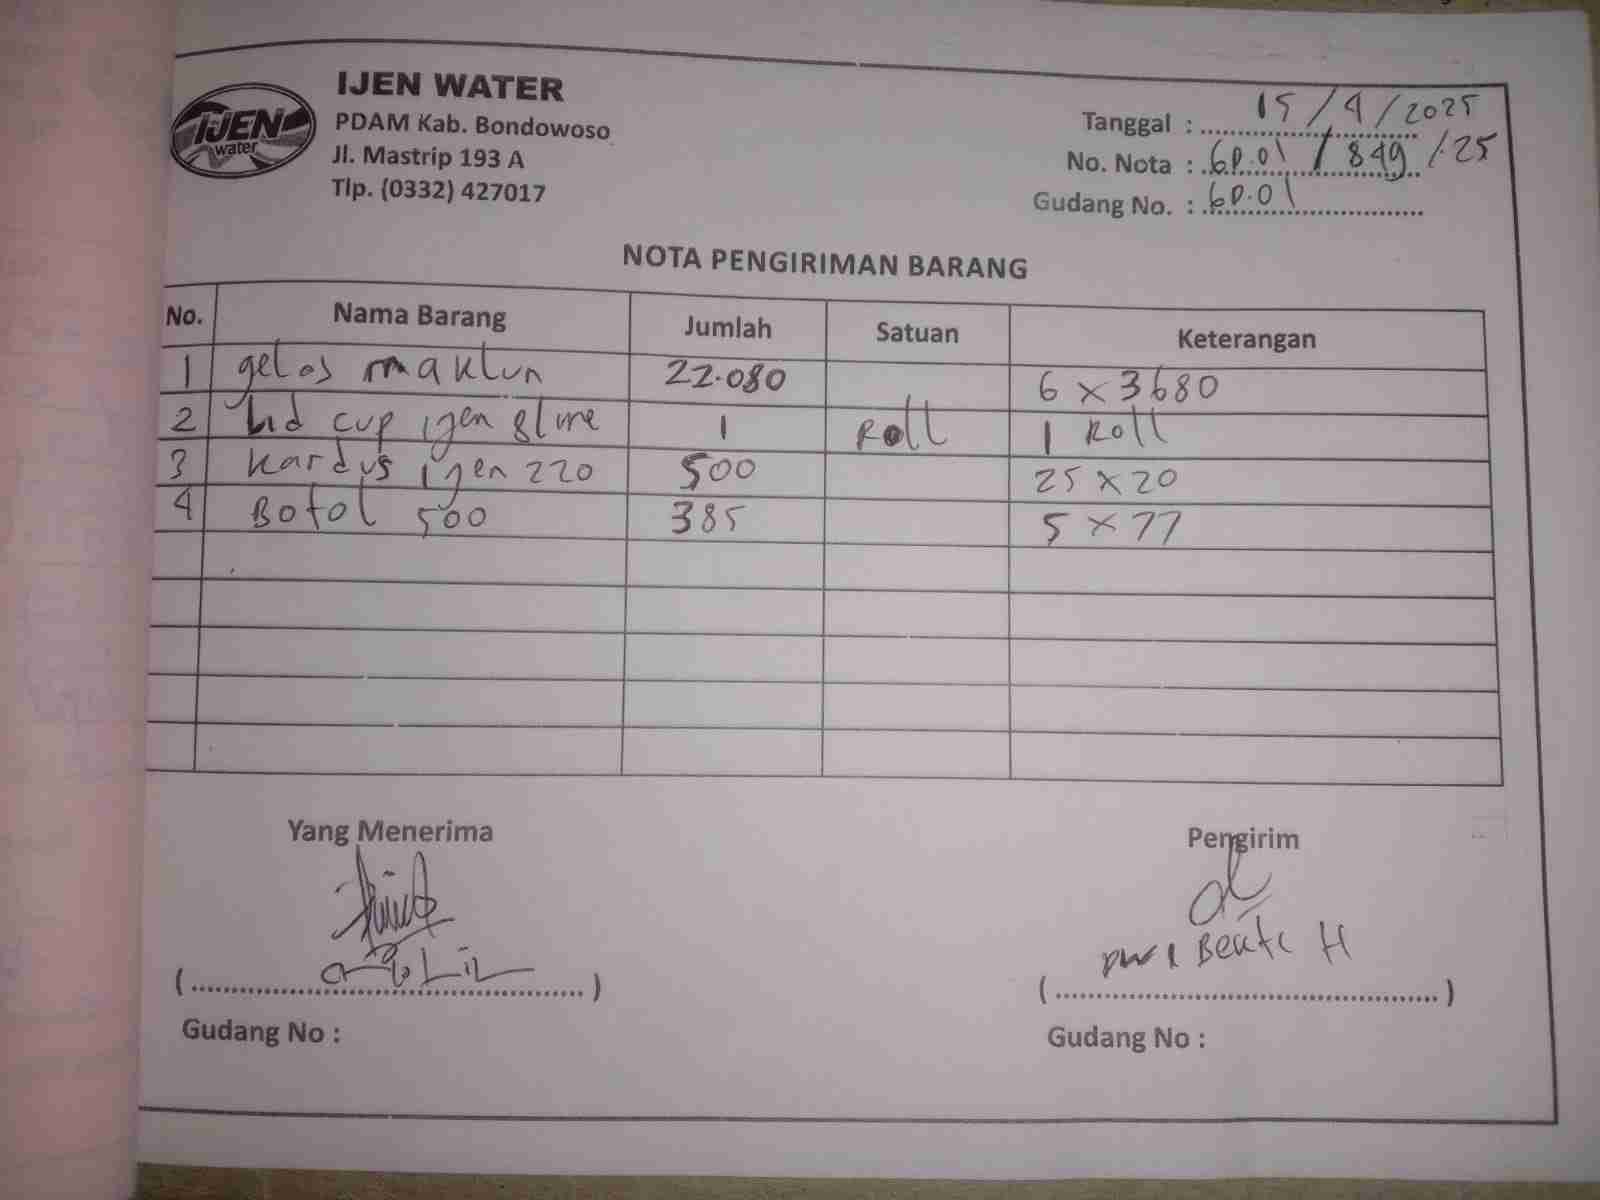 IJEN WATER
IJEN
water
PDAM Kab. Bondowoso
Jl. Mastrip 193 A
Tlp. (0332) 427017
Tanggal : 15 / 4 / 2025
No. Nota : 6D.01 / 849 /.25
Gudang No. : 6D.01
NOTA PENGIRIMAN BARANG
No. Nama Barang Jumlah Satuan Keterangan
1 gelas maklun 22.080 6 x 3680
2 Lid cup ijen slime 1 Roll 1 Roll
3 Kardus ijen 220 500 25 x 20
4 Botol 500 385 5 x 77
Yang Menerima Pengirim
Dwi H
(........................) (........................)
Gudang No : Gudang No :